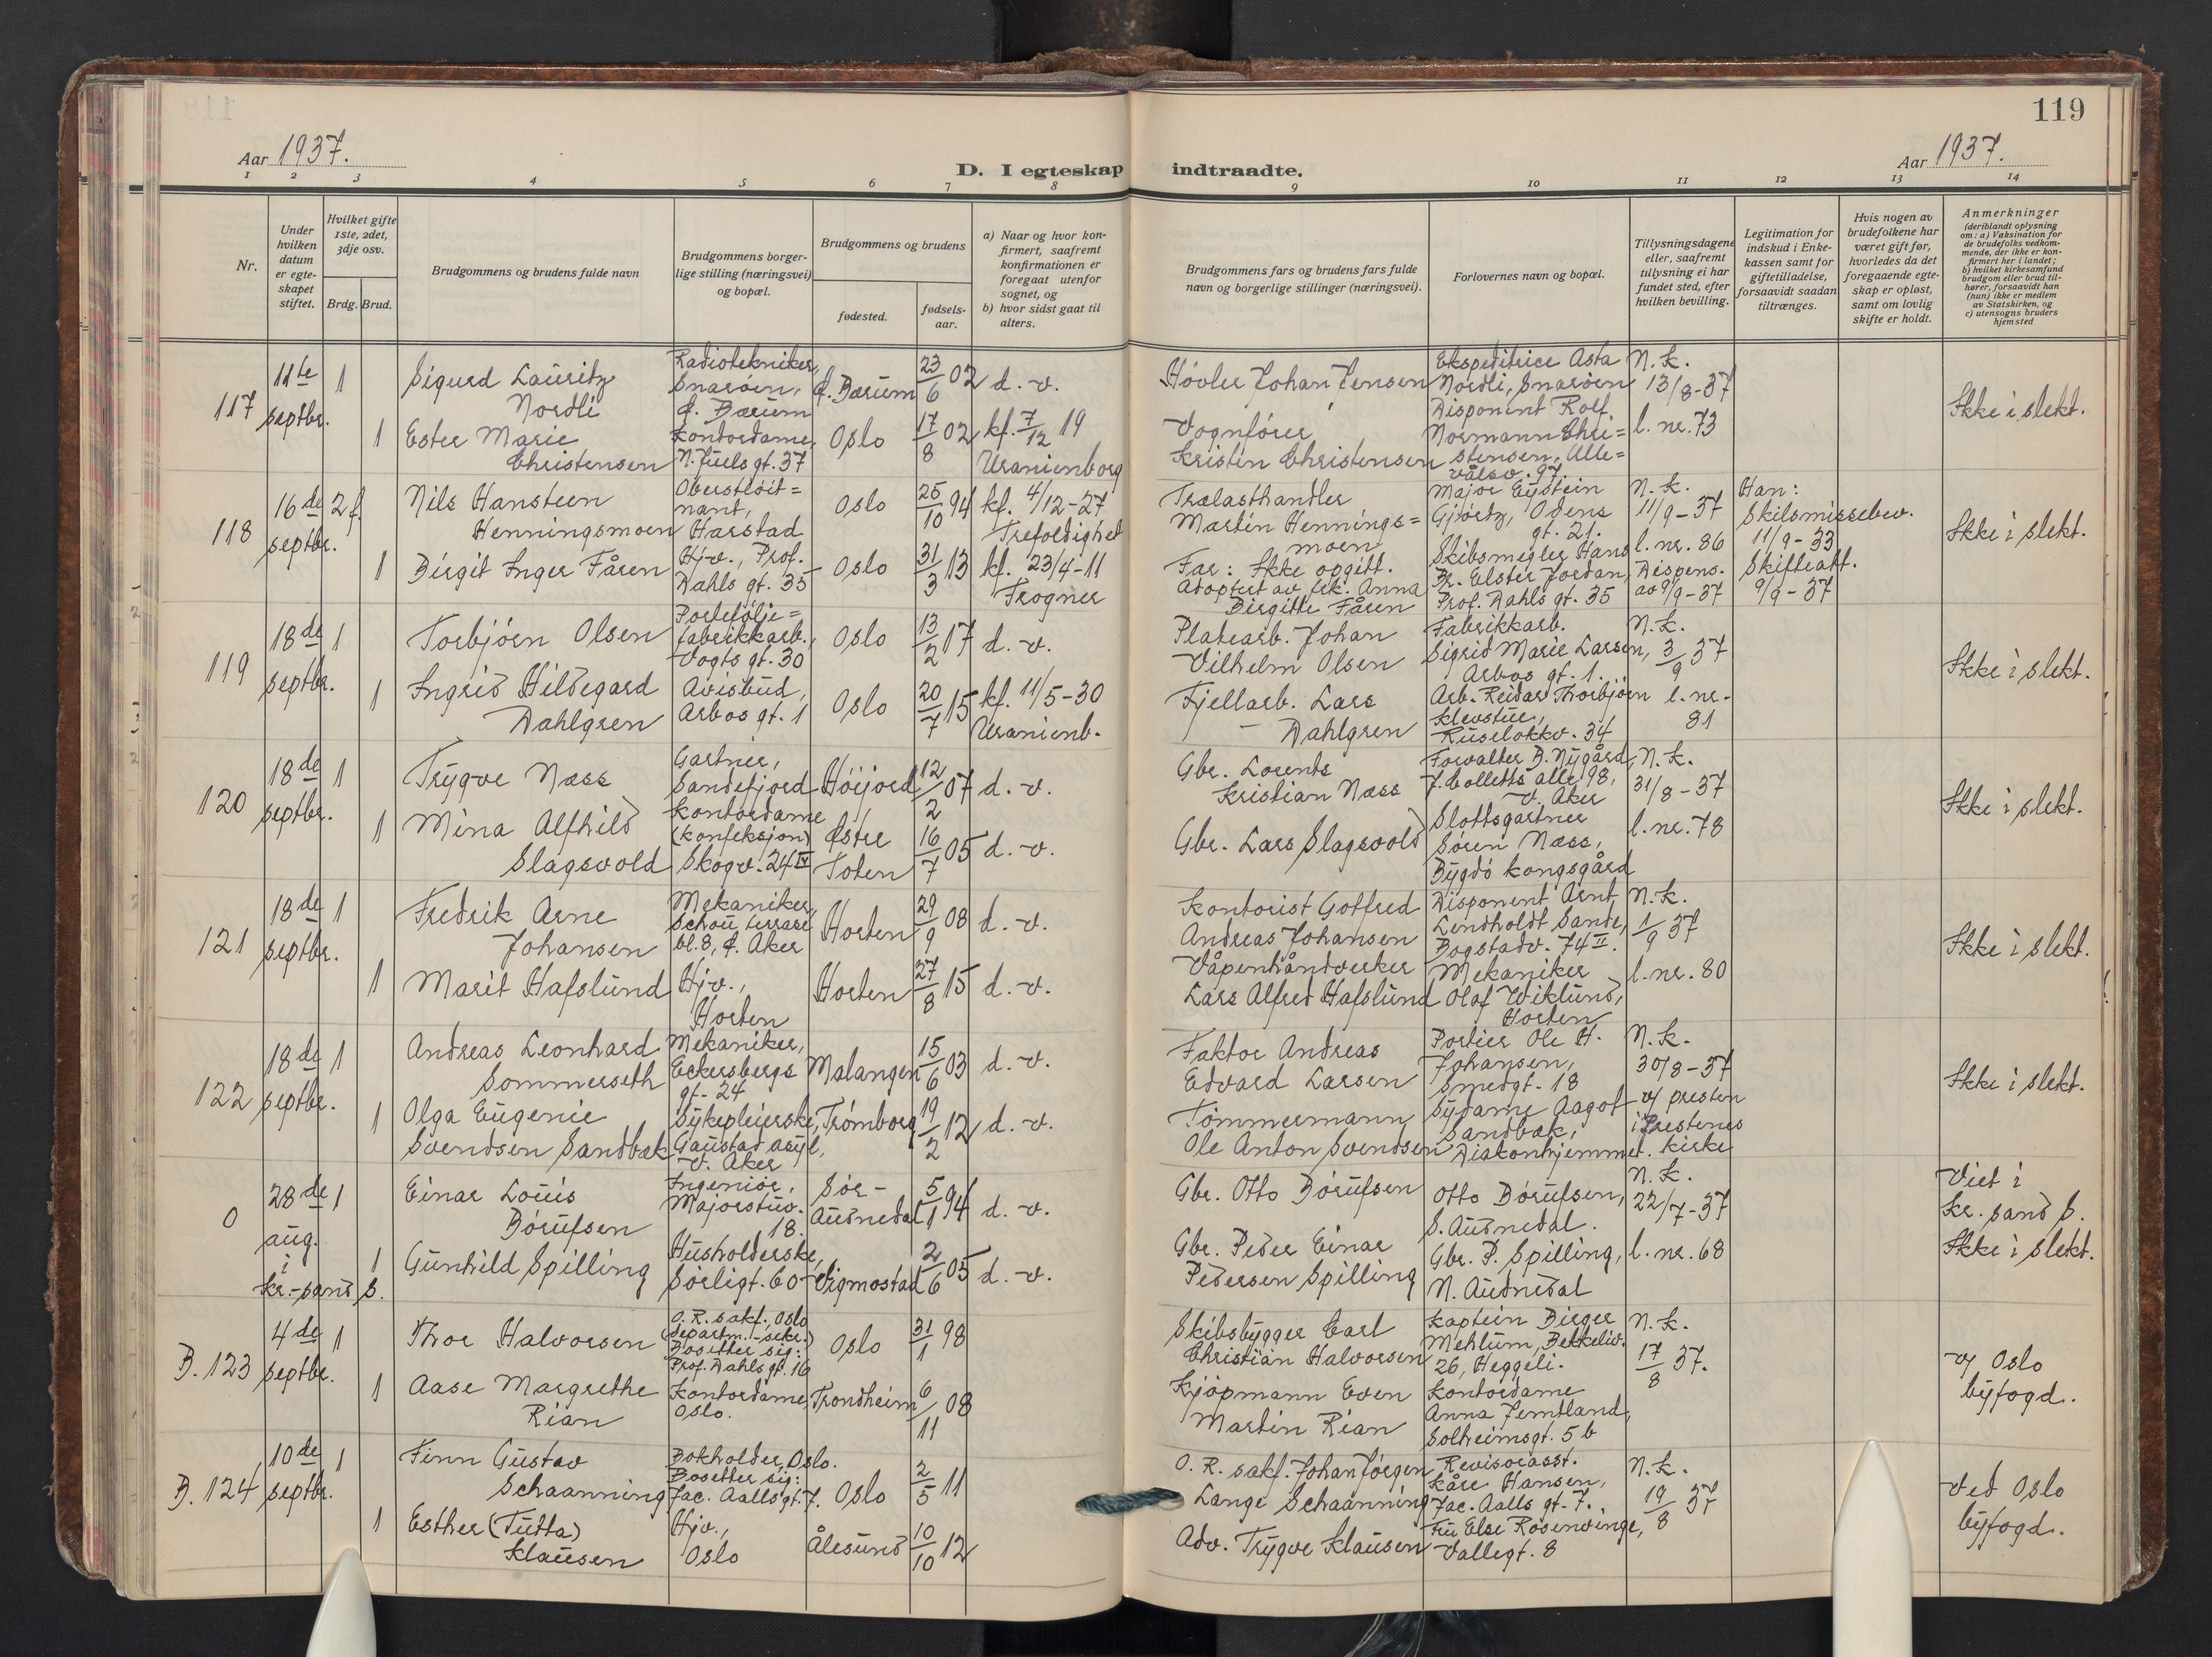 119
Aar 1937.
D. I egteskap indtraadte.
Aar 1937.
1 2 3 4 5 6 7 8 9 10 11 12 13 14
Nr.
Under hvilken datum er egteskapet stiftet.
Hvilket gifte 1ste, 2det, 3dje osv.
Brdg. Brud.
Brudgommens og brudens fulde navn
Brudgommens borgerlige stilling (næringsvei) og bopæl.
Brudgommens og brudens
fødested.
fødselsaar.
a) Naar og hvor konfirmert, saafremt konfirmationen er foregaat utenfor sognet, og
b) hvor sidst gaat til alters.
Brudgommens fars og brudens fars fulde navn og borgerlige stillinger (næringsvei).
Forlovernes navn og bopæl.
Tillysningsdagene eller, saafremt tillysning ei har fundet sted, efter hvilken bevilling.
Legitimation for indskud i Enkekassen samt for giftetilladelse, forsaavidt saadan tiltrænges.
Hvis nogen av brudefolkene har været gift før, hvorledes da det foregaaende egteskap er opløst, samt om lovlig skifte er holdt.
Anmerkninger (deriblandt oplysning om: a) Vaksination for de brudefolks vedkommende, der ikke er konfirmert her i landet; b) hvilket kirkesamfund brudgom eller brud tilhører, forsaavidt han (hun) ikke er medlem av Statskirken, og c) utensogns bruders hjemsted
117
11te septbr.
1
Sigurd Lauritz Nordli
Radiotekniker, Snarøen, Ø. Bærum
Ø. Bærum
23/6 02
d. v.
Høvler Johan Jensen
Ekspeditrice Asta Nordli, Snarøen
N. k. 13/8-37
l. nr. 73
Ikke i slekt.
1
Ester Marie Christensen
Kontordame, N. Juels gt. 37
Oslo
17/8 02
kf. 7/12 19 Uranienborg
Vognfører Kristen Christensen
Disponent Rolf Normann Christensen, Ullevålsv. 97.
118
16de septbr.
2 f.
Nils Hansteen Henningsmoen
Oberstløitnant, Harstad
Oslo
25/10 94
kf. 4/12-27 Trefoldighet
Trælasthandler Martin Henningsmoen
Major Eystein Gjørtz, Odens gt. 21.
N. k. 11/9-37
l. nr. 86
Dispens. av 9/9-37
Han: Skilsmissebev. 11/9-33
Skifteatt. 9/9-37
Ikke i slekt.
1
Birgit Inger Fåren
Hjv., Prof. Dahls gt. 35
Oslo
31/3 13
kf. 23/4-11 Frogner
Far: Ikke opgitt. Adoptert av frk. Anna Birgitte Fåren
Skibsmegler Hans Br. Elster Jordan, Prof. Dahls gt. 35
119
18de septbr.
1
Torbjørn Olsen
Portefølje= fabrikkarb., Vogts gt. 30
Oslo
13/2 17
d. v.
Platearb. Johan Vilhelm Olsen
Fabrikkarb. Sigrid Marie Larsen, Arbos gt. 1.
N. k. 3/9 37
l. nr. 81
Ikke i slekt.
1
Ingrid Hildegard Dahlgren
Avisbud, Arbos gt. 1
Oslo
20/7 15
kf. 11/5-30 Uranienb.
Fjellarb. Lars Dahlgren
Arb. Reidar Thorbjørn Klevstue, Ruseløkkv. 34
120
18de septbr.
1
Trygve Næss
Gartner, Sandefjord
Høijord
12/2 07
d. v.
Gbr. Lorents Kristian Næss
Forvalter B. Nygård, J. Colletts alle 98, V. Aker
N. k. 31/8-37
l. nr. 78
Ikke i slekt.
1
Mina Alfhild Slagsvold
Kontordame (konfeksjon) Skogv. 24 IV
Østre Toten
16/7 05
d. v.
Gbr. Lars Slagsvold
Slottsgartner Søren Næss, Bygdø kongsgård
121
18de septbr.
1
Fredrik Arne Johansen
Mekaniker, Schou terrasse bl. 8, Ø. Aker
Horten
29/9 08
d. v.
Kontorist Gotfred Andreas Johansen
Disponent Arnt Lindholdt Sande, Bogstadv. 74 II.
N. k. 1/9 37
l. nr. 80
Ikke i slekt.
1
Marit Hafslund
Hjv., Horten
Horten
27/8 15
d. v.
Våpenhåndverker Lars Alfred Hafslund
Mekaniker Olaf Wiklund, Horten
122
18de septbr.
1
Andreas Leonhard Sommerseth
Mekaniker, Eckersbergs gt. 24
Malangen
15/6 03
d. v.
Faktor Andreas Edvard Larsen
Portier Ole H. Johansen, Smedgt. 18
N. k. 30/8-37
v/ presten i Prestenes kirke
Ikke i slekt.
1
Olga Eugenie Svendsen Sandbæk
Sykepleierske, Gaustad asyl, V. Aker
Trømborg
19/2 12
d. v.
Tømmermann Ole Anton Svendsen
Sydame Aagot Sandbæk, Diakonhjemmet.
0
28de aug. i Kr.-sand S.
1
Einar Louis Børufsen
Ingeniør, Majorstuv. 18.
Sør-Audnedal
5/1 94
d. v.
Gbr. Otto Børufsen
Otto Børufsen, S. Audnedal.
N. k. 22/7-37
l. nr. 68
Viet i Kr. sand S.
Ikke i slekt.
1
Gunhild Spilling
Husholderske, Sørligt. 60
Vigmostad
2/6 05
d. v.
Gbr. Peder Einar Pedersen Spilling
Gbr. P. Spilling, N. Audnedal
B. 123
4de septbr.
1
Thor Halvorsen
O. R. sakf., Oslo (departm.-sekr.) Bosetter sig: Prof. Dahls gt. 16
Oslo
31/1 98
Skibsbygger Carl Christian Halvorsen
Kaptein Birger Mehlum, Bekkeliv. 26, Heggeli.
N. k. 17/8 37.
v/ Oslo byfogd.
1
Aase Margrethe Rian
Kontordame, Oslo.
Trondheim
6/11 08
Kjøpmann Even Martin Rian
Kontordame Anna Jemtland, Solheimsgt. 5 b
B. 124
10de septbr.
1
Finn Gustav Schaanning
Bokholder, Oslo. Bosetter sig: Jac. Aalls gt. 7.
Oslo
2/5 11
O. R. sakf. Johan Jørgen Lange Schaanning
Revisorasst. Kåre Hansen, Jac. Aalls gt. 7.
N. k. 19/8 37
Ved Oslo byfogd.
1
Esther (Tutta) Klausen
Hjv., Oslo
Ålesund
10/10 12
Adv. Trygve Klausen
Fru Else Rosenvinge, Vallegt. 8